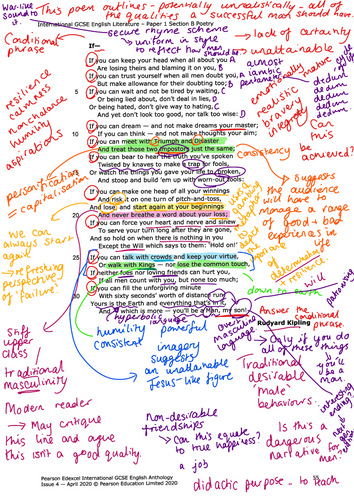 War-like sound to it.
This poem outlines - potentially unrealistically - all of the qualities a successful man should have.
International GCSE English Literature – Paper 1 Section B Poetry
Conditional phrase
secure rhyme scheme
uniform style to reflect how men should be.
→ lack of certainty
→ unattainable
If—
If you can keep your head when all about you A
Are losing theirs and blaming it on you, B
If you can trust yourself when all men doubt you, A
But make allowance for their doubting too: B
5 If you can wait and not be tired by waiting, C
Or being lied about, don't deal in lies, D
Or being hated, don't give way to hating, C
And yet don't look too good, nor talk too wise: D
almost iambic pentameter
dedum
dedum
dedum
dedum
dedum
emotionally mature
realistic
bravery
integrity
resilience
calmness
nonchalance
humility
aspirations
If you can dream — and not make dreams your master;
10 If you can think — and not make thoughts your aim;
If you can meet with Triumph and Disaster
And treat those two impostors just the same;
If you can bear to hear the truth you've spoken
Twisted by knaves to make a trap for fools,
15 Or watch the things you gave your life to, broken,
And stoop and build 'em up with worn-out tools:
Can this consistency be achieved?
personification
capitalisation
If you can make one heap of all your winnings
And risk it on one turn of pitch-and-toss,
And lose, and start again at your beginnings
20 And never breathe a word about your loss;
If you can force your heart and nerve and sinew
To serve your turn long after they are gone,
And so hold on when there is nothing in you
Except the Will which says to them: 'Hold on!'
suggests the audience will have to manage a range of good + bad experiences in life
always start again
→ refreshing perspective of 'failure'
25 If you can talk with crowds and keep your virtue,
Or walk with Kings — nor lose the common touch,
If neither foes nor loving friends can hurt you,
If all men count with you, but none too much;
If you can fill the unforgiving minute
30 With sixty seconds' worth of distance run,
Yours is the Earth and everything that's in it,
And — which is more — you'll be a Man, my son!
Rudyard Kipling
down to earth
Stiff upper class / traditional masculinity
hyperbolic language
humility
consistent
powerful imagery suggests an unattainable Jesus-like figure
overtly masculine language
Answer the conditional phrase.
→ Only if you do all of these things → you'll be a man
Traditional desirable 'male' behaviours.
Modern reader
→ May critique this line and argue this isn't a good quality
Non-desirable friendships
→ Can this equate to true happiness?
a job
Is this a dangerous narrative for men?
didactic purpose - to teach
Pearson Edexcel International GCSE English Anthology
Issue 4 — April 2020 © Pearson Education Limited 2020